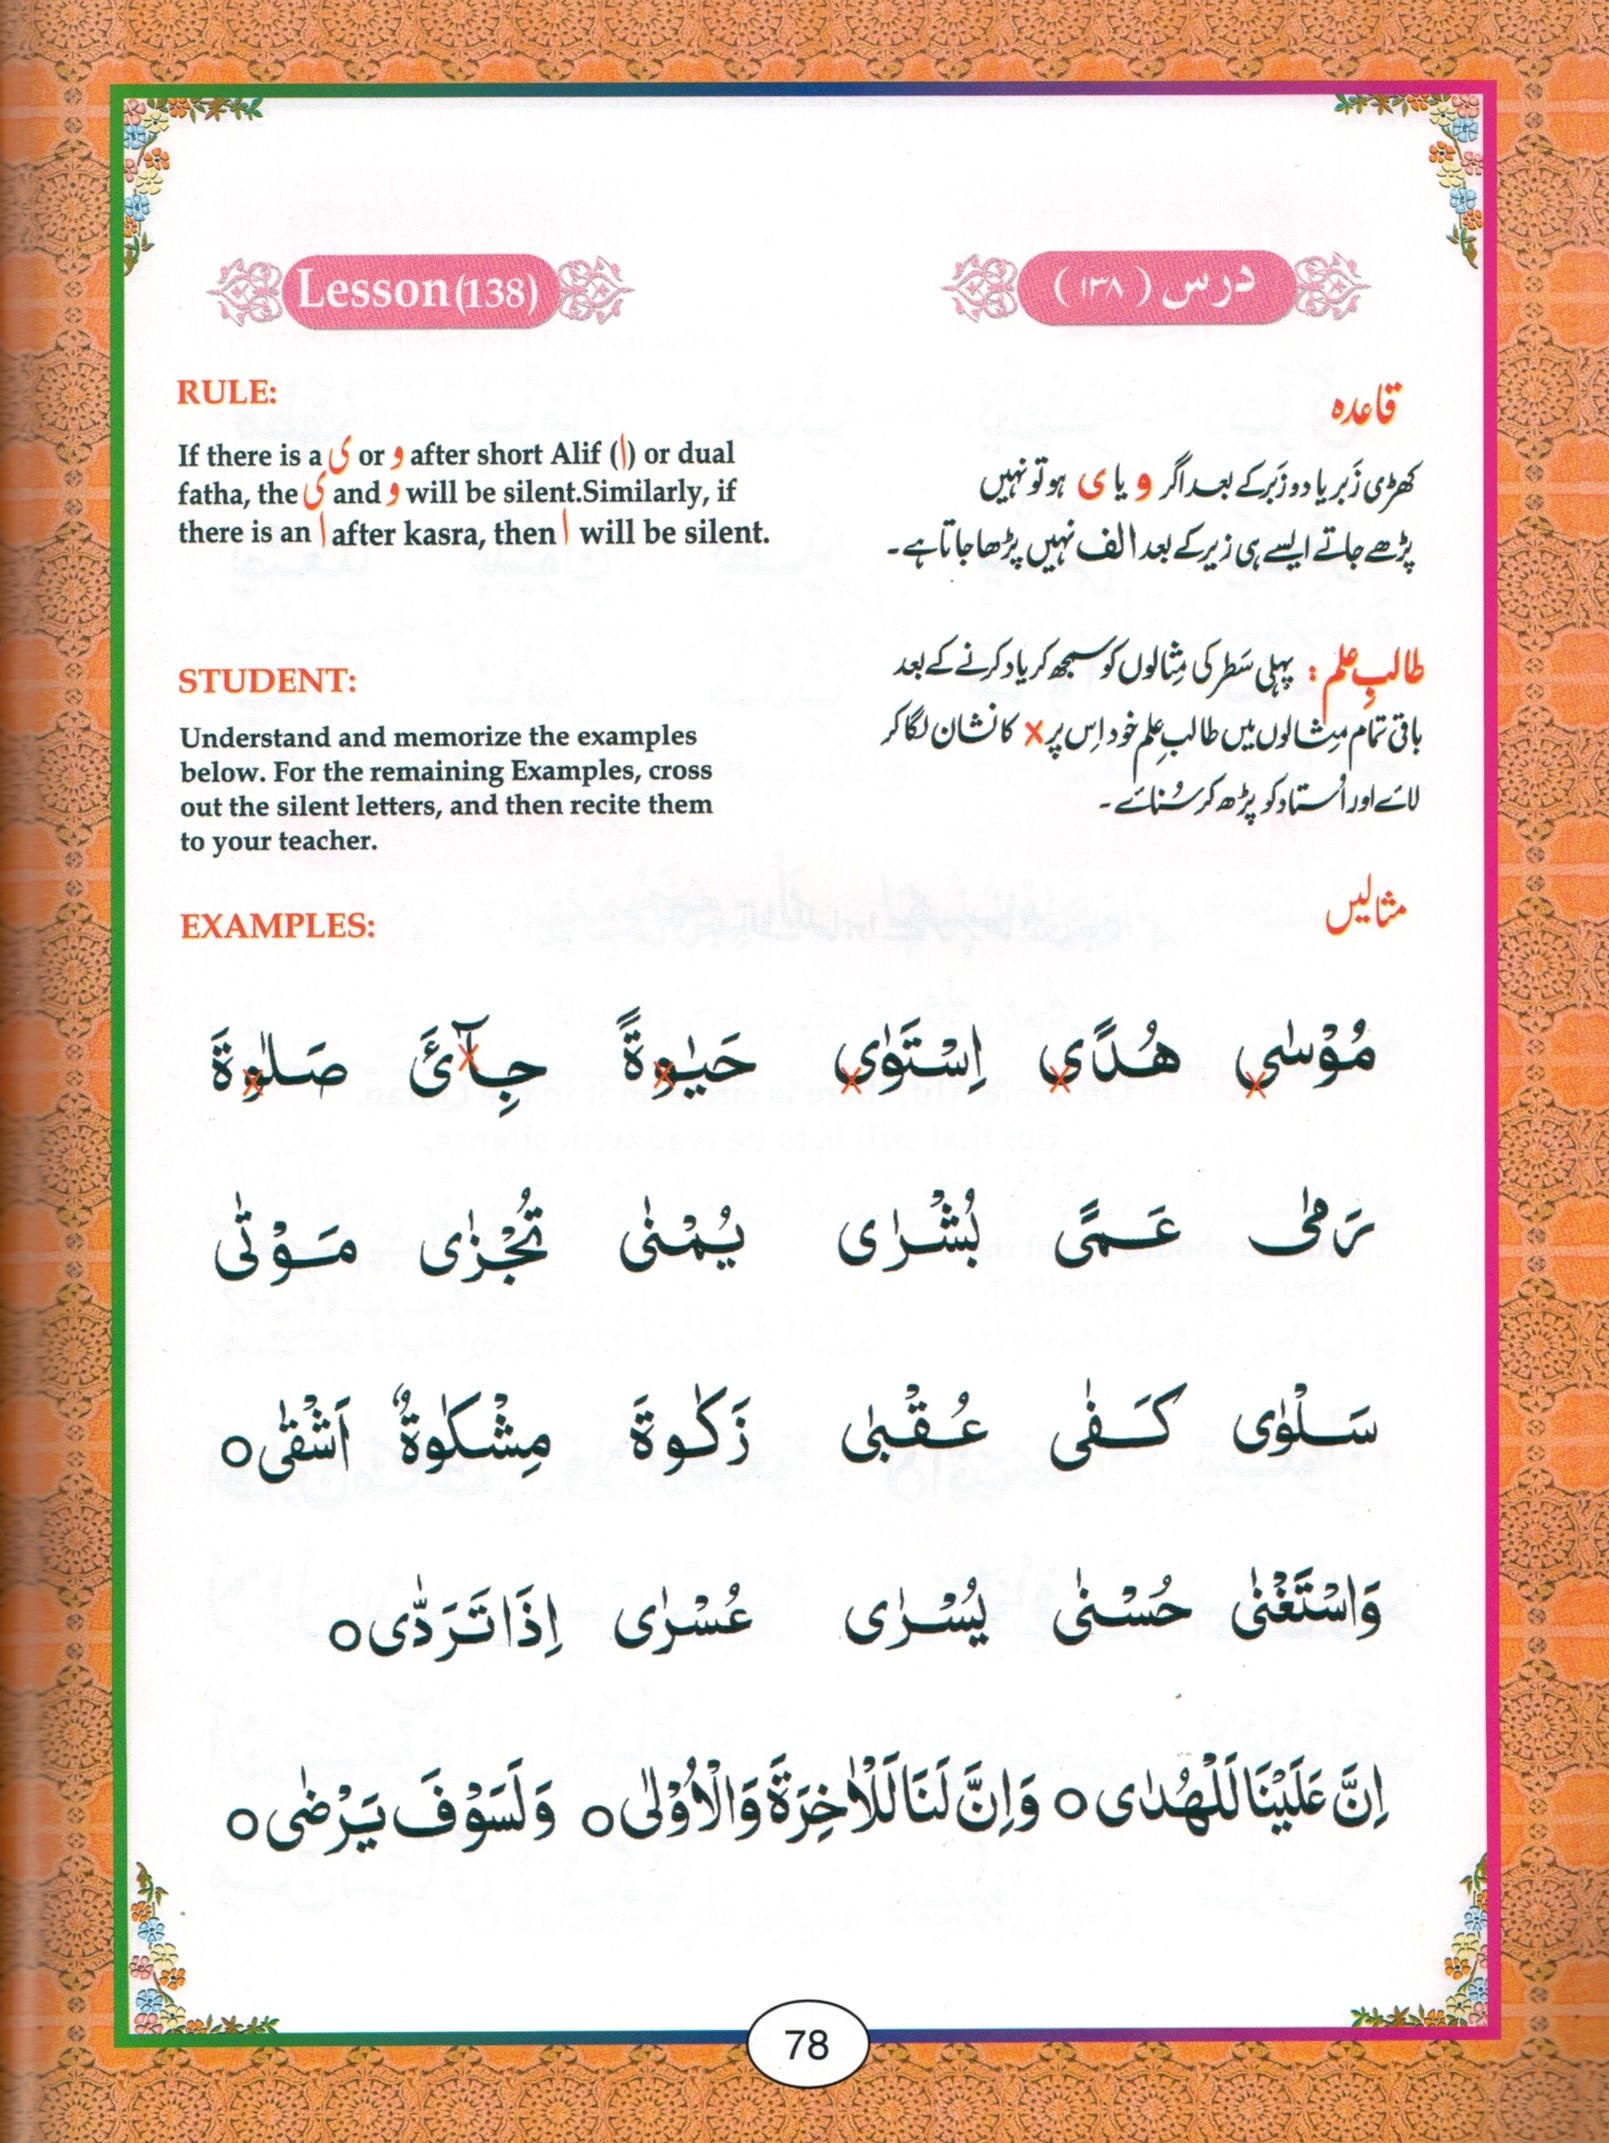 Lesson (138)
درس (۱۳۸)
RULE:
If there is a ی or و after short Alif (ا) or dual
fatha, the ی and و will be silent.Similarly, if
there is an ا after kasra, then ا will be silent.
قاعدہ
کھڑی زَبر یا دو زَبَر کے بعد اگر و یا ی ہو تو نہیں
پڑھے جاتے ایسے ہی زیر کے بعد الف نہیں پڑھا جاتا ہے۔
STUDENT:
Understand and memorize the examples
below. For the remaining Examples, cross
out the silent letters, and then recite them
to your teacher.
طالبِ علم : پہلی سَطر کی مِثالوں کو سمجھ کر یاد کرنے کے بعد
باقی تمام مِثالوں میں طالبِ علم خود اِس پر × کا نشان لگا کر
لائے اور اُستاد کو پڑھ کر سُنائے۔
EXAMPLES:
مثالیں
مُوْسٰی هُدًی اِسْتَوٰی حَیٰوةً جِآئَ صَلٰوةَ
رَمٰی عَمًی بُشْرٰی یُمْنٰی تُجْزٰی مَوْتٰی
سَلْوٰی كَفٰی عُقْبٰی زَكٰوةَ مِشْكٰوةٌ اَشْقٰی○
وَاسْتَغْنٰی حُسْنٰی یُسْرٰی عُسْرٰی اِذَا تَرَدّٰی○
اِنَّ عَلَیْنَا لَلْهُدٰی○ وَاِنَّ لَنَا لَلْاٰخِرَةَ وَالْاُوْلٰی○ وَلَسَوْفَ یَرْضٰی○
78